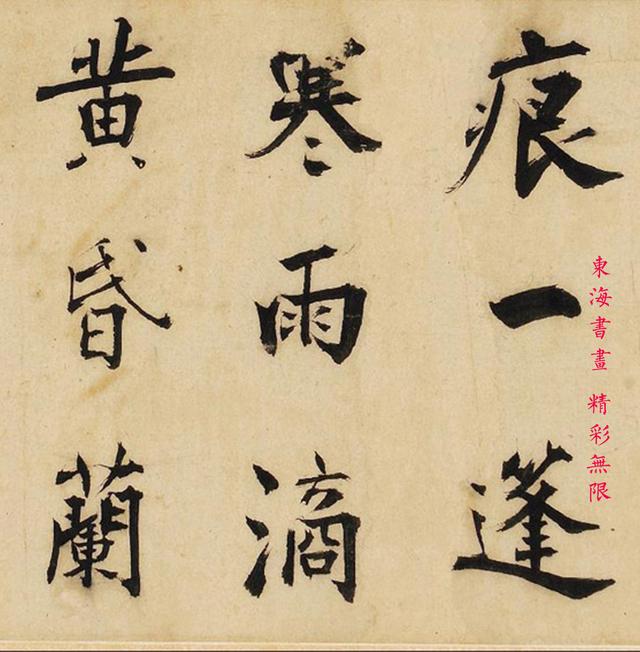 痕一蓬
寒雨滴
黄昏蘭
東海書畫 精彩無限